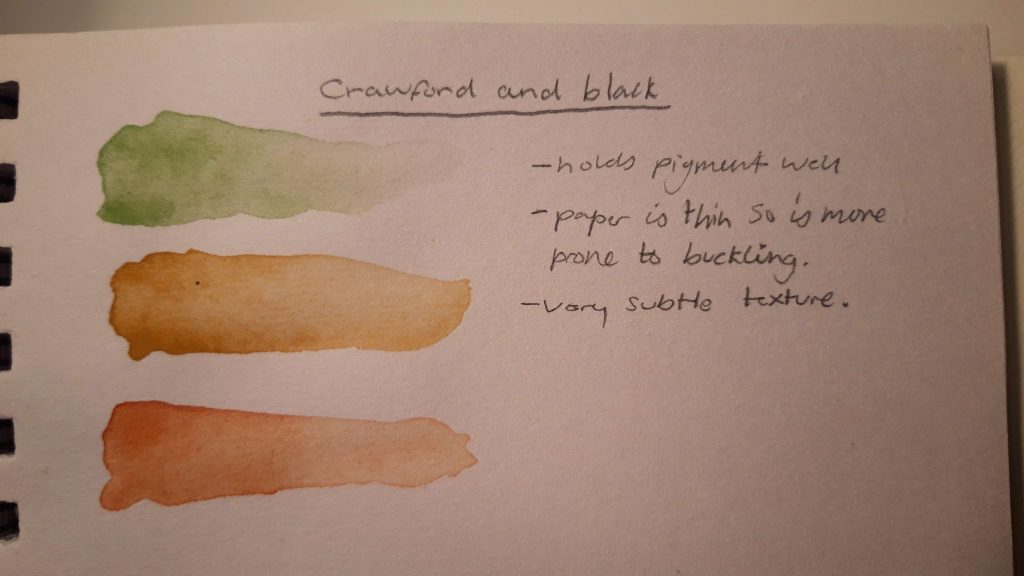 Crawford and black
- holds pigment well
- paper is thin so is more
prone to buckling.
- very subtle texture.